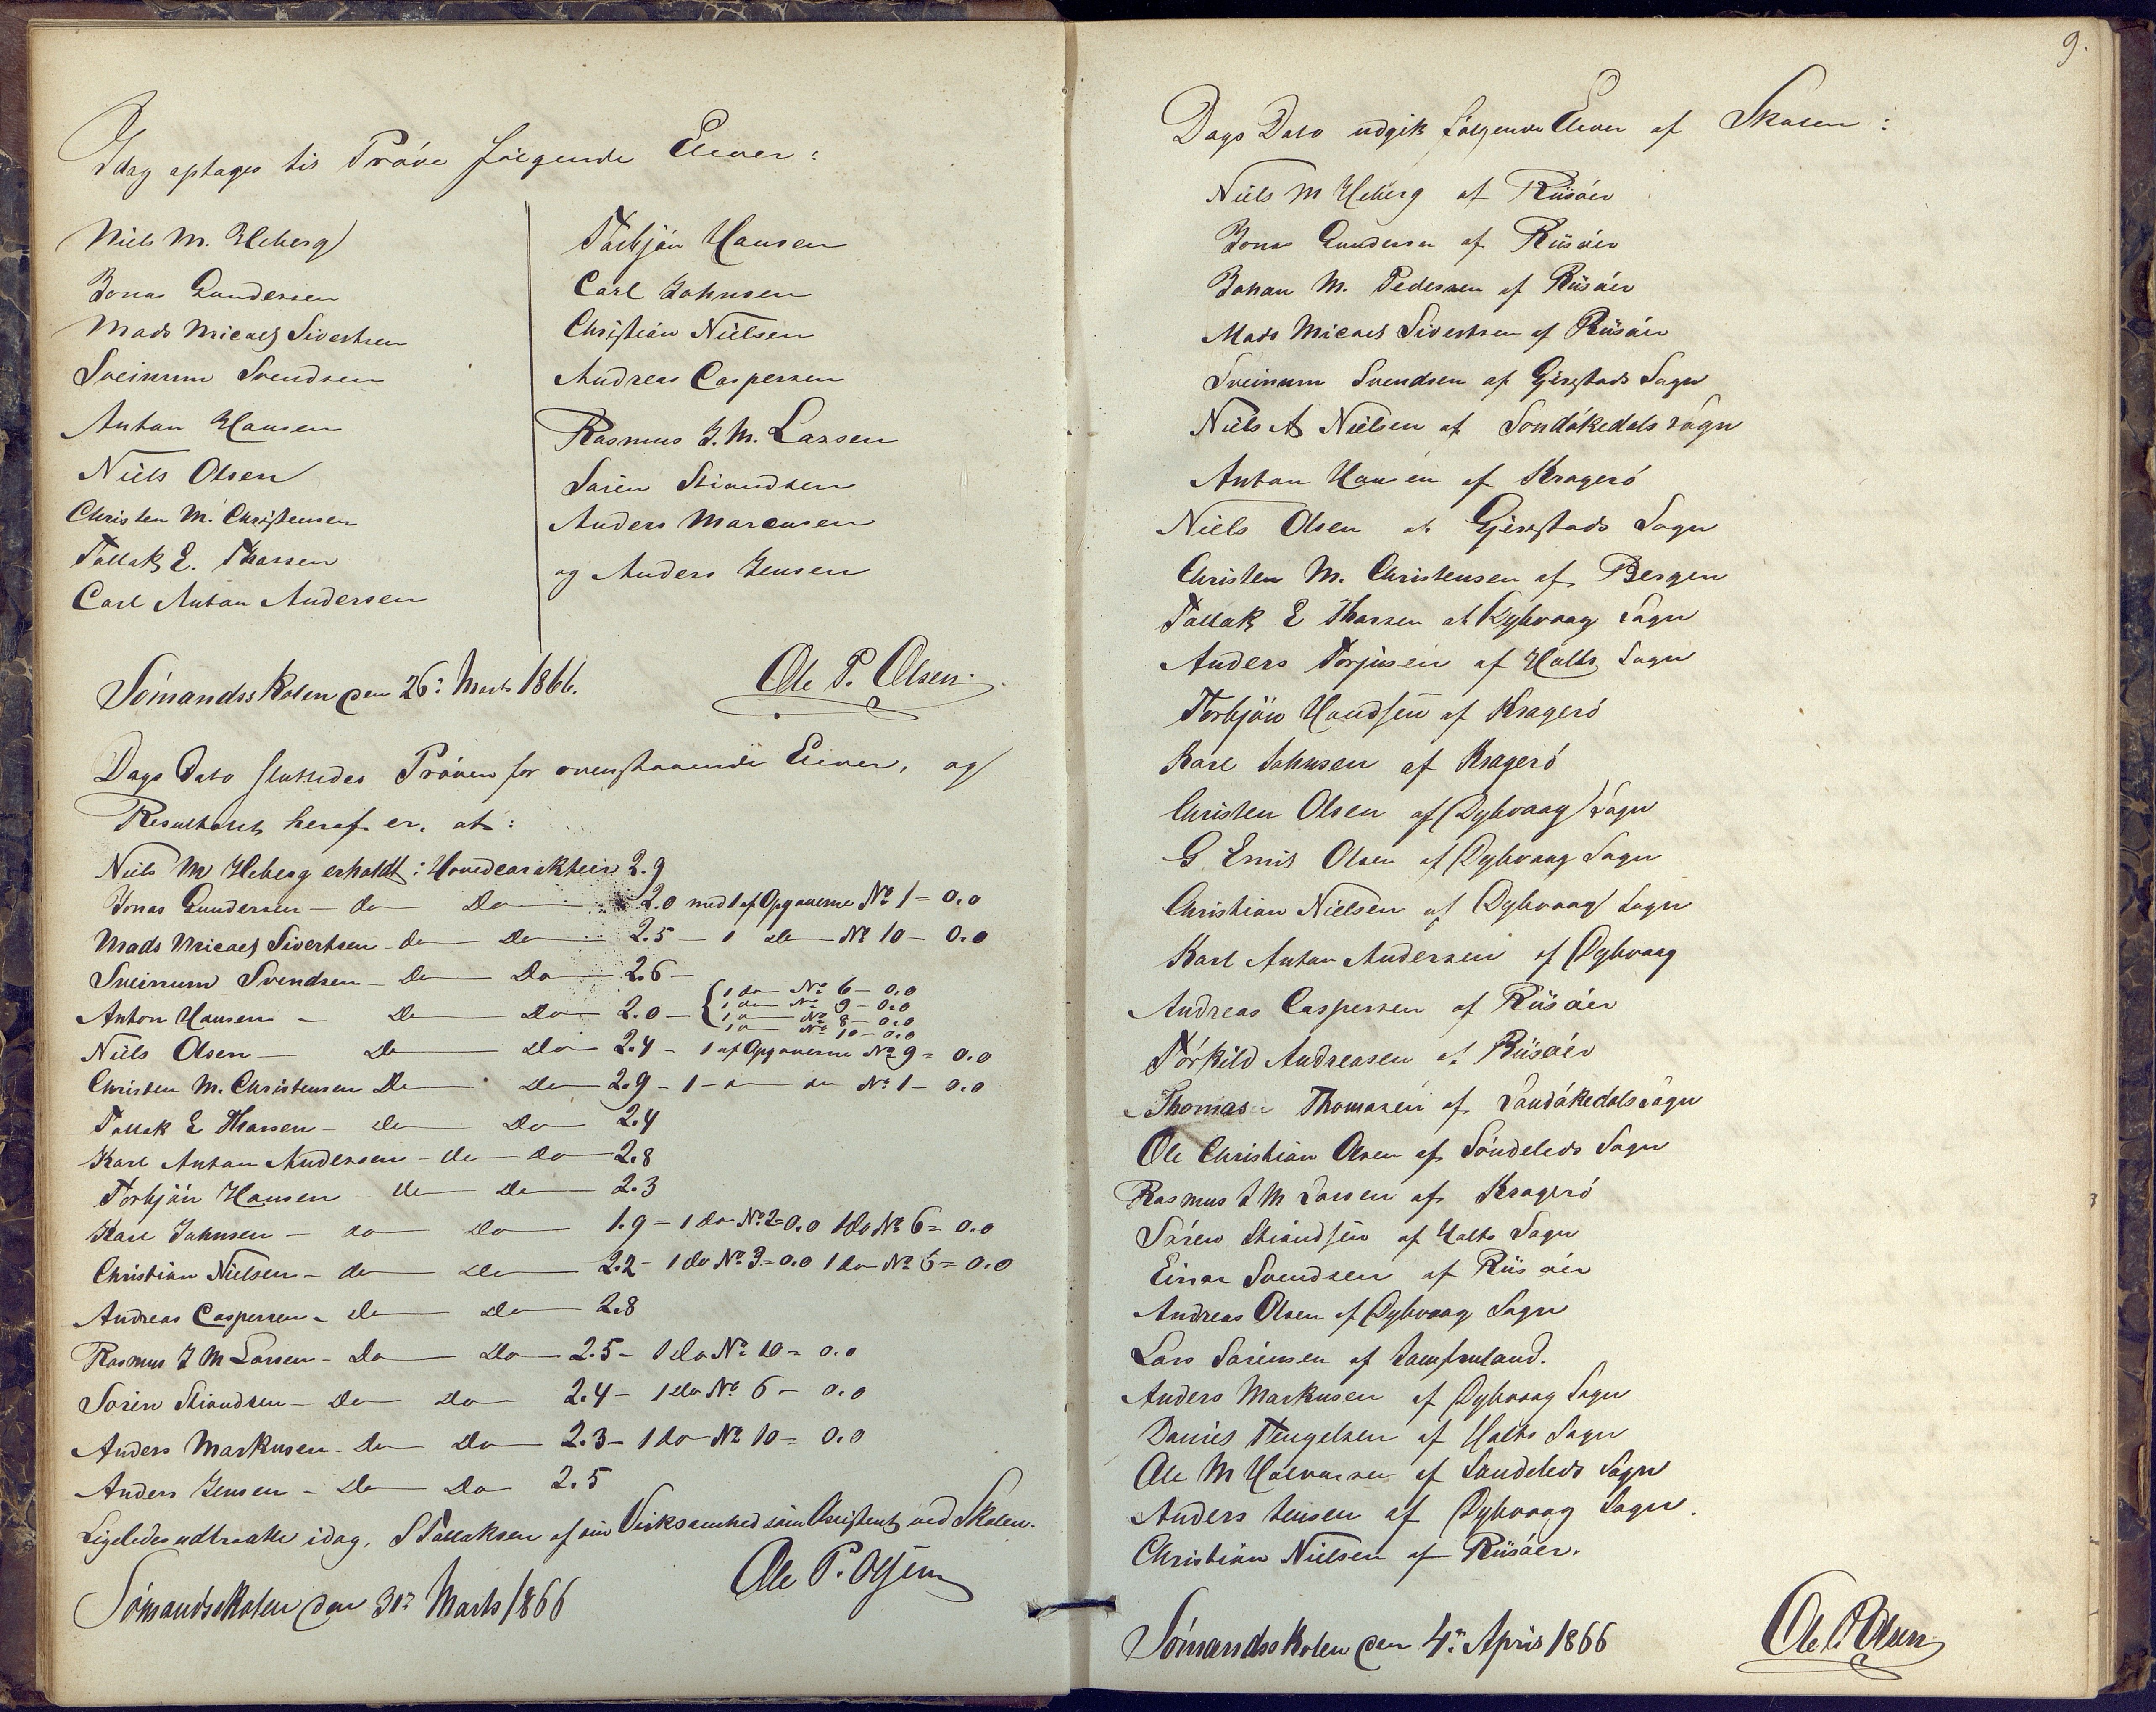 Idag optages til Pröve fölgende Elever:
Niels M. Heberg
Jonas Gundersen
Mads Micael Sivertsen
Sveinum Svendsen
Anton Hansen
Niels Olsen
Christen M. Christensen
Tallak E. Thorsen
Carl Anton Andersen
Torbjön Hansen
Carl Johnsen
Christian Nielsen
Andreas Caspersen
Rasmus J. M. Larsen
Sören Stiandsen
Anders Marcusen
og Anders Jensen
Sömandsskolen den 26: Marts 1866.
Ole P. Olsen.
Dags Dato sluttedes Pröven for ovenstaaende Elever, og
Resultatet heraf er, at:
Niels M Heberg erholdt: Hovedcarakteer 2.9
Jonas Gundersen – do – Do – 2.0 med 1 af Opgaverne No 1 = 0.0
Mads Micael Sivertsen – do – Do – 2.5 – 1 do – No 10 – 0.0
Sveinum Svendsen – Do – Do – 2.6 –
Anton Hansen – Do – Do – 2.0 – { 1 do – No 6 – 0.0
1 do – No 9 – 0.0
1 do – No 8 – 0.0
1 do – No 10 – 0.0
Niels Olsen – Do – Do 2.4 – 1 af Opgaverne No 9 = 0.0
Christen M. Christensen Do – Do – 2.9 – 1 – do – do No 1 – 0.0
Tallak E Thorsen – do – Do – 2.4
Karl Anton Andersen – do – do – 2.8
Torbjön Hansen do – Do – 2.3
Karl Johnsen – do – Do – 1.9 = 1 do No 2 = 0.0 1 do No 6 = 0.0
Christian Nielsen – do – Do – 2.2 – 1 do No 3 = 0.0 1 do No 6 = 0.0
Andreas Caspersen – Do – Do – 2.8
Rasmus J M Larsen – Do – Do – 2.5 – 1 do No 10 = 0.0
Sören Stiandsen – Do – Do – 2.4 – 1 do No 6 – 0.0
Anders Markusen – Do – Do – 2.3 – 1 do No 10 = 0.0
Anders Jensen – Do – Do 2.5
Ligeledes udtraadte idag, S Tallaksen af sin Virksomhed som Assistent ved Skolen.
Sömandsskolen den 31: Marts 1866
Ole P. Olsen
9.
Dags Dato udgik fölgende Elever af Skolen:
Niels M Heberg af Riisöer
Jonas Gundersen af Riisöer
Johan M. Pedersen af Riisöer
Mads Micael Sivertsen af Riisöer
Sveinum Svendsen af Gjerstads Sogn
Niels A Nielsen af Sondökedals Sogn
Anton Hansen af Kragerö
Niels Olsen af Gjerstads Sogn
Christen M. Christensen af Bergen
Tallak E Thorsen af Dybvaag Sogn
Anders Torjusen af Holts Sogn
Torbjön Handsen af Kragerö
Karl Johnsen af Kragerö
Christen Olsen af Dybvaag Sogn
G. Emil Olsen af Dybvaag Sogn
Christian Nielsen af Dybvaag Sogn
Karl Anton Andersen af Dybvaag
Andreas Caspersen af Riisöer
Törkild Andreasen af Riisöer
Thomas Thomasen af Sandökedals Sogn
Ole Christian Olsen af Söndeleds Sogn
Rasmus J M Larsen af Kragerö
Sören Stiandsen af Holts Sogn
Einar Svendsen af Riisöer
Andreas Olsen af Dybvaag Sogn
Lars Sörensen af Jomfruland.
Anders Markusen af Dybvaag Sogn
Daniel Tengelsen af Holts Sogn
Ole M Halvorsen af Sandeleds Sogn
Anders Jensen af Dybvaag Sogn.
Christian Nielsen af Riisöer.
Sömandsskolen den 4: April 1866
Ole P. Olsen